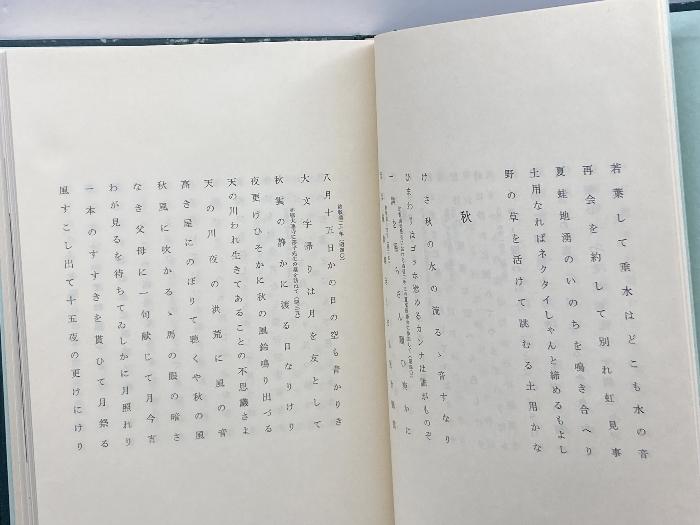 若葉して垂水はどこも水の音
再会を約して別れ虹見事
夏蛙地湧のいのちを鳴き合へり
土用なればネクタイしやんと締めるもよし
野の草を活けて読むる土用かな
秋
けさ秋の水の流るゝ音すなり
ひまわりはゴッホ悠めるカンナは誰がものぞ
八月十五日かの日の空も青かりき
大文字帰りは月を友として
秋雲の静かに渡る日なりけり
夜更けひそかに秋の風鈴鳴り出づる
天の川われ生きてあることの不思議さよ
天の川夜の洪荒に風の音
高き屋にのぼりて聴くや秋の風
秋風に吹かるゝ馬の眼の暗さ
なき父母に一句献じて月今宵
わが見るを待ちてゐしかに月照れり
一本のすすきを貰ひて月祭る
風すこし出て十五夜の更けにけり